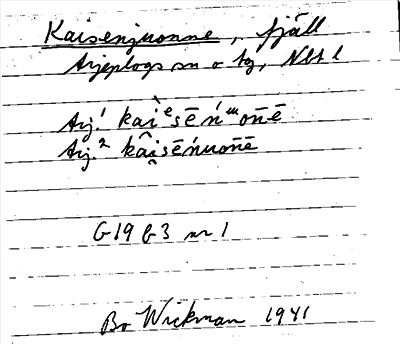 Kaisenjuonne, fjäll
Arjeplogs sn o tg, Nbt l
Arj.¹ kaìᵉsēń ᵚoñē
Arj.² kâi̯sēńuoñē
G 19 b 3 nr 1
Bo Wickman 1941